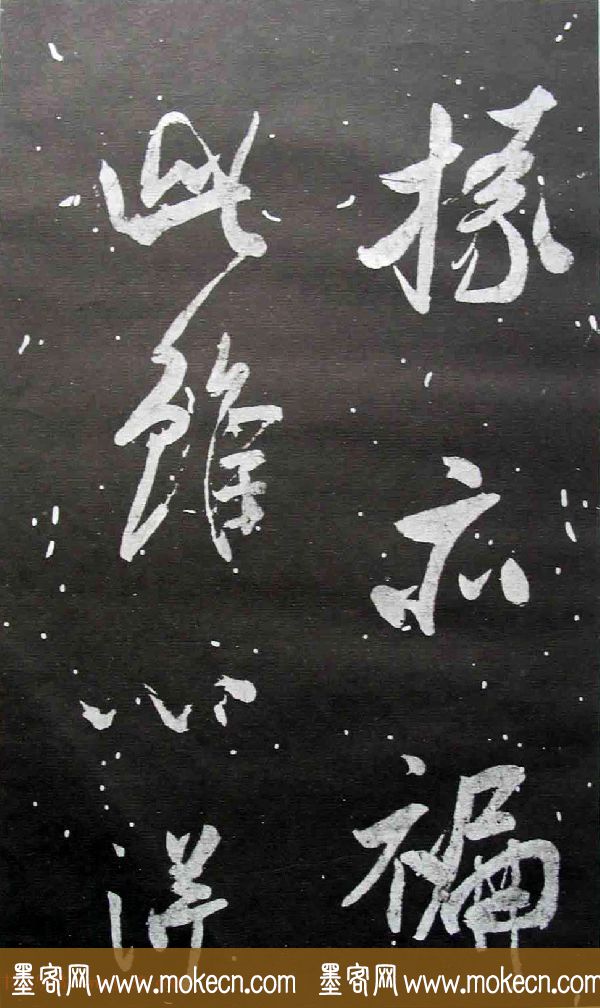 掾亦褊
此雖心
墨客网 www.mokecn.com 墨客网 www.mokecn.com